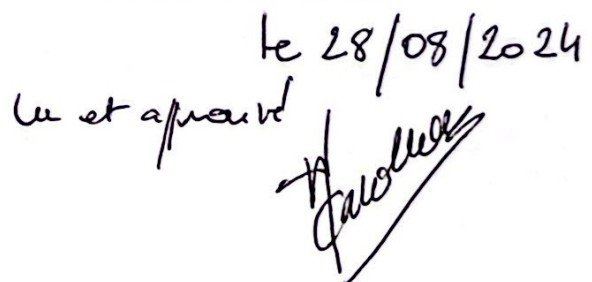 le 28/08/2024
lu et aprouvé